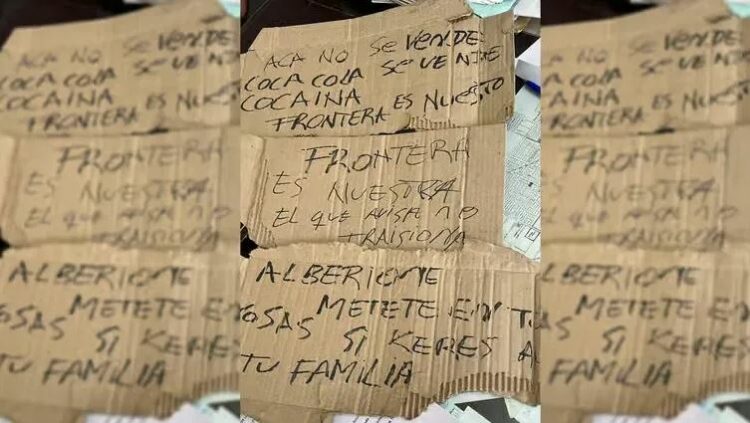 ACA NO SE VENDE
COCA COLA SE VENDE
COCAINA
FRONTERA ES NUESTO
FRONTERA
ES NUESTRA
EL QUE AVISA NO
TRAISIONA
ALBERIONE
METETE EN T
OSAS SI KERES A
TU FAMILIA